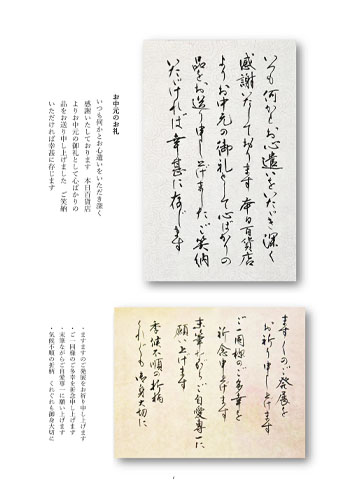 お中元のお礼
いつも何かとお心遣いをいただき深く
感謝いたしております　本日百貨店
よりお中元の御礼として心ばかりの
品をお送り申し上げました　ご笑納
いただければ幸甚に存じます
いつも何かとお心遣いをいただき深く
感謝いたしております 本日百貨店
よりお中元の御礼として心ばかりの
品をお送り申し上げました ご笑納
いただければ幸甚に存じます
・ますますのご発展をお祈り申し上げます
・ご一同様のご多幸を祈念申し上げます
・末筆ながらご自愛専一に願い上げます
・気候不順の折柄　くれぐれも御身大切に
ますますのご発展を
お祈り申し上げます
ご一同様のご多幸を
祈念申し上げます
末筆ながらご自愛専一に
願い上げます
季候不順の折柄
くれぐれも御身大切に